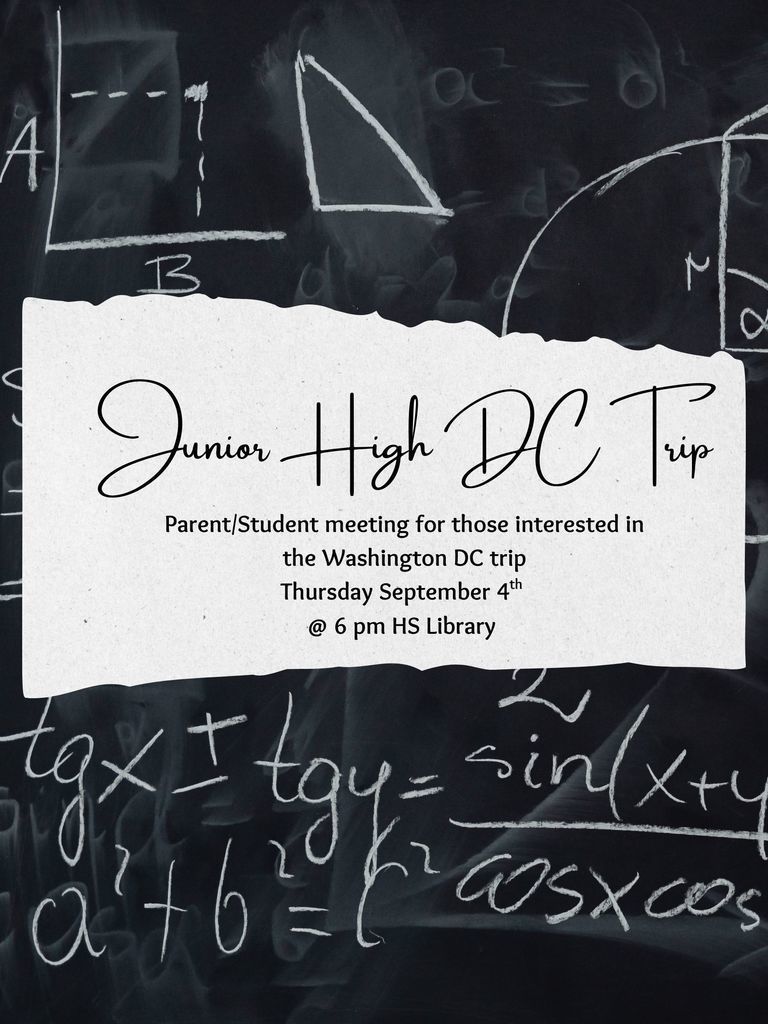 A
B
r
α
Junior High DC Trip
Parent/Student meeting for those interested in
the Washington DC trip
Thursday September 4th
@ 6 pm HS Library
2
tgx ± tgy = sin(x+y
cosx cos
a² + b² = c²